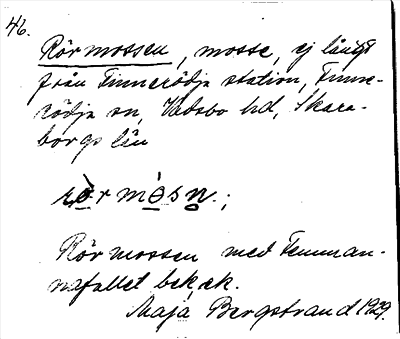 46.
Rörmossen, mosse, ej långt
från Finnerödja station, Finne-
rödja sn, Vadsbo hd, Skara-
borgs län
rö̀r mósn.;
Rörmossen med Femman-
nafallet bek. ek.
Maja Bergstrand 1929.